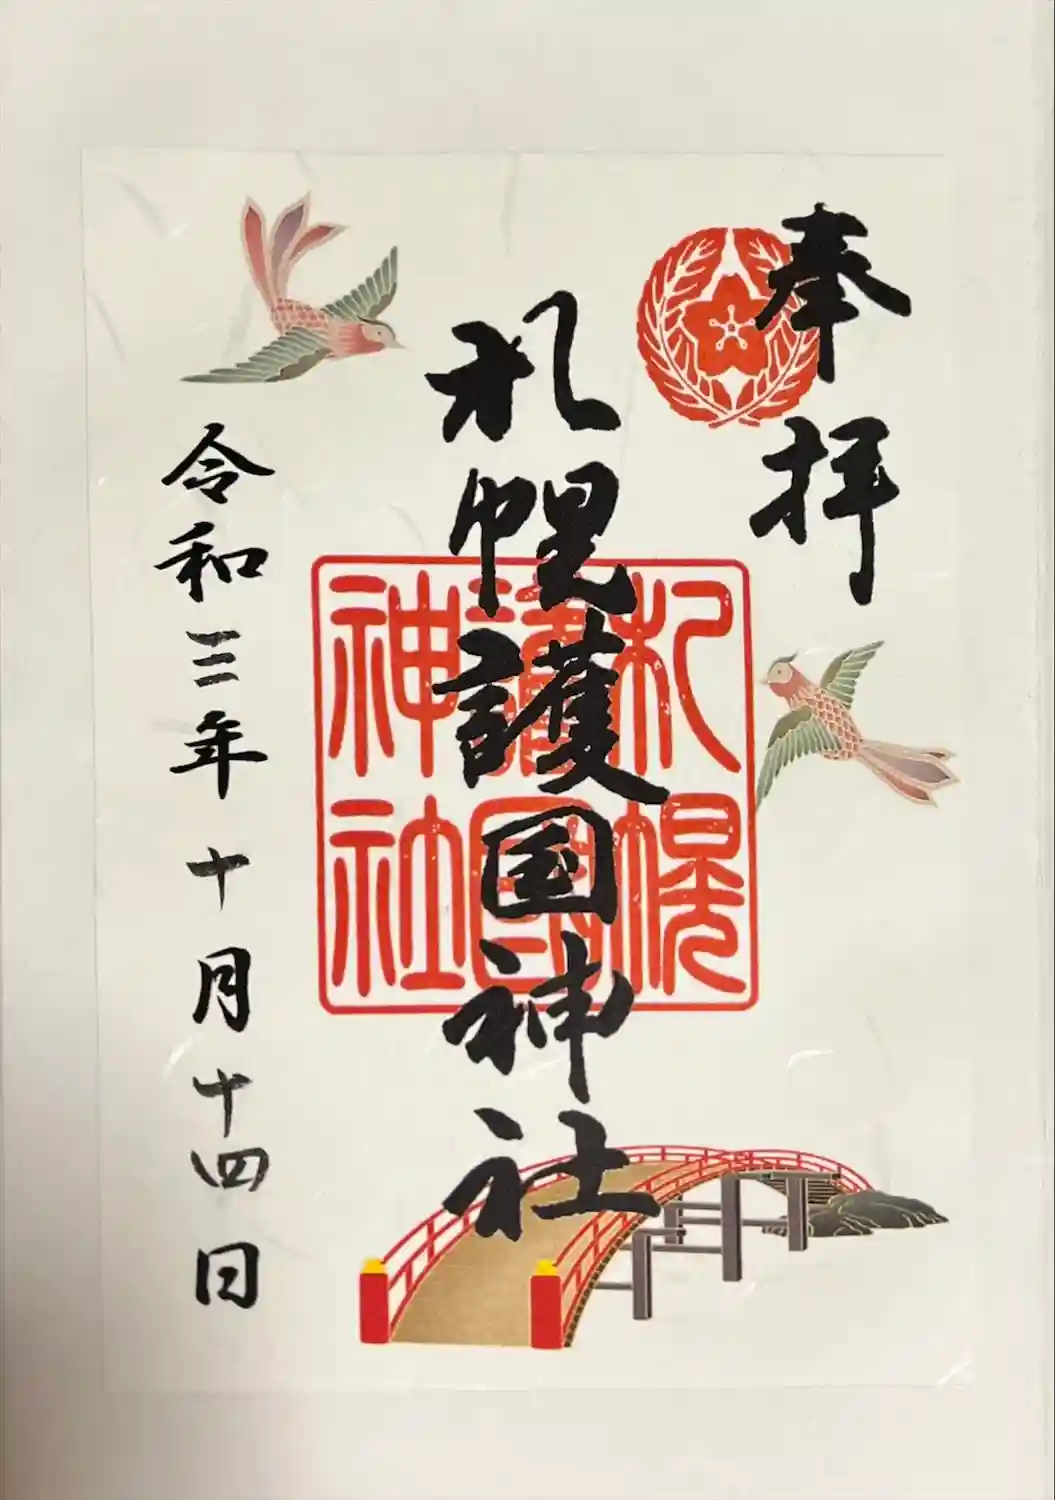 奉拝
札幌護国神社
札幌
護國
神社
令和三年十月十四日